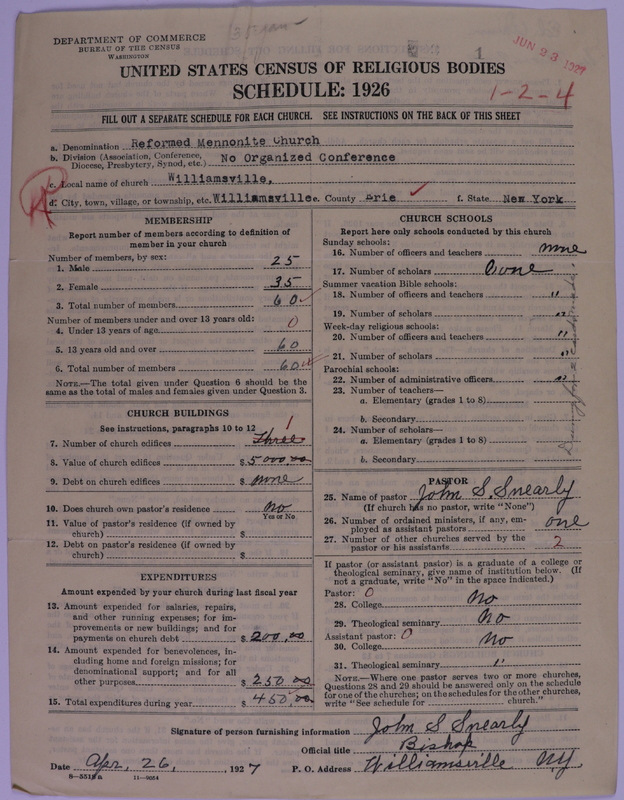 DEPARTMENT OF COMMERCE
BUREAU OF THE CENSUS
WASHINGTON
1
JUN 23 1927
UNITED STATES CENSUS OF RELIGIOUS BODIES
SCHEDULE: 1926
1-2-4
FILL OUT A SEPARATE SCHEDULE FOR EACH CHURCH. SEE INSTRUCTIONS ON THE BACK OF THIS SHEET
a. Denomination Reformed Mennonite Church
b. Division (Association, Conference, Diocese, Presbytery, Synod, etc.) No Organized Conference
c. Local name of church Williamsville,
d. City, town, village, or township, etc. Williamsville e. County Erie f. State New York
MEMBERSHIP
Report number of members according to definition of
member in your church
Number of members, by sex:
1. Male 25
2. Female 35
3. Total number of members 60
Number of members under and over 13 years old:
4. Under 13 years of age 0
5. 13 years old and over 60
6. Total number of members 60
NOTE.—The total given under Question 6 should be the
same as the total of males and females given under Question 3.
CHURCH BUILDINGS
See instructions, paragraphs 10 to 12
1
7. Number of church edifices Three
8. Value of church edifices $5000.00
9. Debt on church edifices $none
10. Does church own pastor's residence no
Yes or No
11. Value of pastor's residence (if owned by
church) $
12. Debt on pastor's residence (if owned by
church) $
EXPENDITURES
Amount expended by your church during last fiscal year
13. Amount expended for salaries, repairs,
and other running expenses; for im-
provements or new buildings; and for
payments on church debt $200.00
14. Amount expended for benevolences, in-
cluding home and foreign missions; for
denominational support; and for all
other purposes $250.00
15. Total expenditures during year $450.00
CHURCH SCHOOLS
Report here only schools conducted by this church
Sunday schools:
16. Number of officers and teachers none
17. Number of scholars none
Summer vacation Bible schools:
18. Number of officers and teachers "
19. Number of scholars "
Week-day religious schools:
20. Number of officers and teachers "
21. Number of scholars "
Parochial schools:
22. Number of administrative officers "
23. Number of teachers—
a. Elementary (grades 1 to 8)
b. Secondary
24. Number of scholars—
a. Elementary (grades 1 to 8)
b. Secondary
PASTOR
25. Name of pastor John S. Snearly
(If church has no pastor, write "None")
26. Number of ordained ministers, if any, em-
ployed as assistant pastors one
27. Number of other churches served by the
pastor or his assistants 2
If pastor (or assistant pastor) is a graduate of a college or
theological seminary, give name of institution below. (If
not a graduate, write "No" in the space indicated.)
Pastor: 0
28. College No
29. Theological seminary No
Assistant pastor: 0
30. College No
31. Theological seminary "
NOTE.—Where one pastor serves two or more churches,
Questions 28 and 29 should be answered only on the schedule
for one of the churches; on the schedules for the other churches,
write "See schedule for church."
Signature of person furnishing information John S Snearly
Official title Bishop
Date Apr, 26, 1927 P. O. Address Williamsville NY
8—551a 11—9034